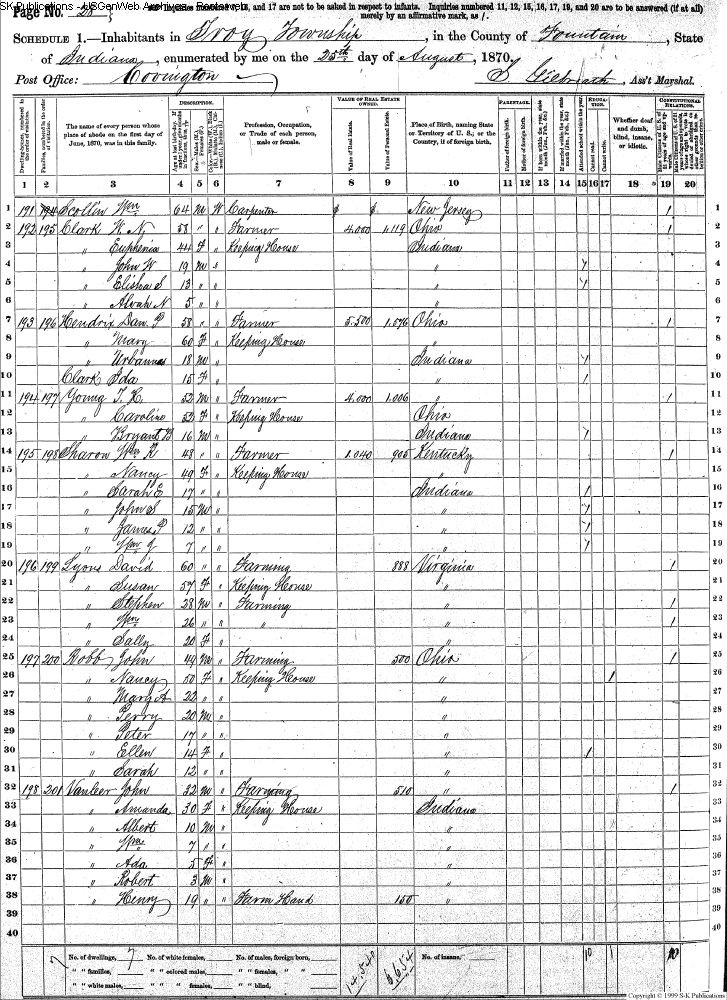 SK Publications - USGenWeb Archives - Rootsweb
Page No. 28 and inquiries numbered 16, and 17 are not to be asked in respect to infants. Inquiries numbered 11, 12, 15, 16, 17, 19, and 20 are to be answered (if at all)
merely by an affirmative mark, as /.
SCHEDULE 1.—Inhabitants in Troy Township, in the County of Fountain, State
of Indiana, enumerated by me on the 25th day of August, 1870.
Post Office: Covington Ass't Marshal.
DESCRIPTION. VALUE OF REAL ESTATE OWNED. PARENTAGE. EDUCATION. CONSTITUTIONAL RELATIONS.
The name of every person whose place of abode on the first day of June, 1870, was in this family.
Profession, Occupation, or Trade of each person, male or female.
Value of Real Estate. Value of Personal Estate.
Place of Birth, naming State or Territory of U. S.; or the Country, if of foreign birth.
Father of foreign birth. Mother of foreign birth.
Attended school within the year. Cannot read. Cannot write.
Whether deaf and dumb, blind, insane, or idiotic.
1 2 3 4 5 6 7 8 9 10 11 12 13 14 15 16 17 18 19 20
1 191 194 Scollin Wm 64 M W Carpenter $ $ New Jersey / 1
2 192 195 Clark W. N. 58 " " Farmer 4,000 1,119 Ohio / 2
3 " Euphenia 44 F " Keeping House Indiana 3
4 " John W 19 M " " / 4
5 " Elisha S 13 " " " / 5
6 " Alvah N 5 " " " 6
7 193 196 Hendrix Dan. P 58 " " Farmer 5,500 1,076 Ohio / 7
8 " Mary 60 F " Keeping House " 8
9 " Urbannas 18 M " Indiana / 9
10 Clark Ida 15 F " " / 10
11 194 197 Young T. H. 52 M " Farmer 4,000 1,006 " / 11
12 " Caroline 52 F " Keeping House Ohio 12
13 " Bryant B 16 M " Indiana / 13
14 195 198 Sharon Wm K 48 " " Farmer 1,040 905 Kentucky / 14
15 " Nancy 49 F " Keeping House " 15
16 " Sarah E 17 " " Indiana / 16
17 " John S 15 M " " / 17
18 " James P 12 " " " / 18
19 " Wm J 7 " " " / 19
20 196 199 Lyons David 60 " " Farming 888 Virginia / 20
21 " Susan 57 F " Keeping House " 21
22 " Stephen 28 M " Farming " / 22
23 " Wm 26 " " " " / 23
24 " Sally 20 F " " 24
25 197 200 Robb John 49 M " Farming 500 Ohio / 25
26 " Nancy 50 F " Keeping House " / 26
27 " Mary A 22 " " " 27
28 " Perry 20 M " " 28
29 " Peter 17 " " " 29
30 " Ellen 14 F " " / 30
31 " Sarah 12 " " " 31
32 198 201 Vanleer John 32 M " Farming 510 " / 32
33 " Amanda 30 F " Keeping House Indiana 33
34 " Albert 10 M " " 34
35 " Wm 7 " " " 35
36 " Ada 5 F " " 36
37 " Robert 3 M " " 37
38 " Henry 19 " " Farm Hand 150 " 38
39 39
40 40
No. of dwellings, 7 No. of white females, No. of males, foreign born, 14,540 6,654 No. of insane, 10 1 10
" " families, 7 " " colored males, " " females, " "
" " white males, " " " females, " " blind,
Copyright © 1999 S-K Publications